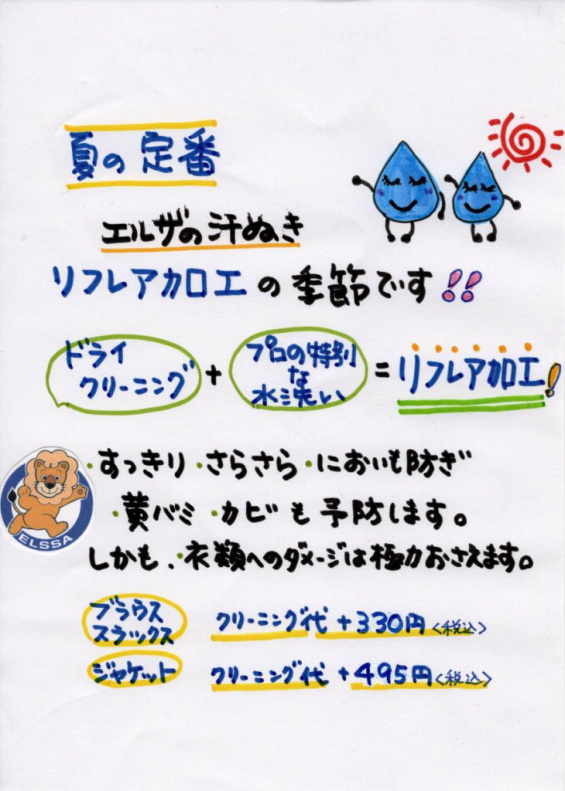 夏の定番
エルザの汗ぬき
リフレア加工の季節です!!
ドライ
クリーニング
+
プロの特別
な
水洗い
=リフレア加工!
・すっきり・さらさら・においも防ぎ
・黄バミ・カビも予防します。
しかも、・衣類へのダメージは極力おさえます。
ELSSA
ブラウス
スラックス
クリーニング代+330円<税込>
ジャケット
クリーニング代+495円<税込>